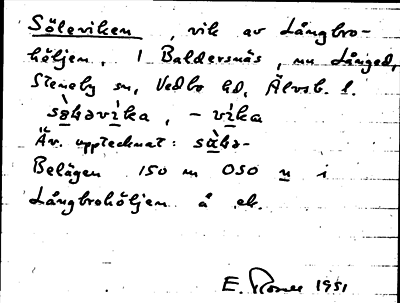 Söleviken, vik av Långbro-
höljen. 1 Baldersnäs, nu Långed,
Steneby sn, Vedbo hd, Älvsb. l.
sø̀ḷəvìka, - vìka
Äv. upptecknat: sὰḷə-
Belägen 150 m OSO n i
Långbrohöljen å ek.
E. 1951